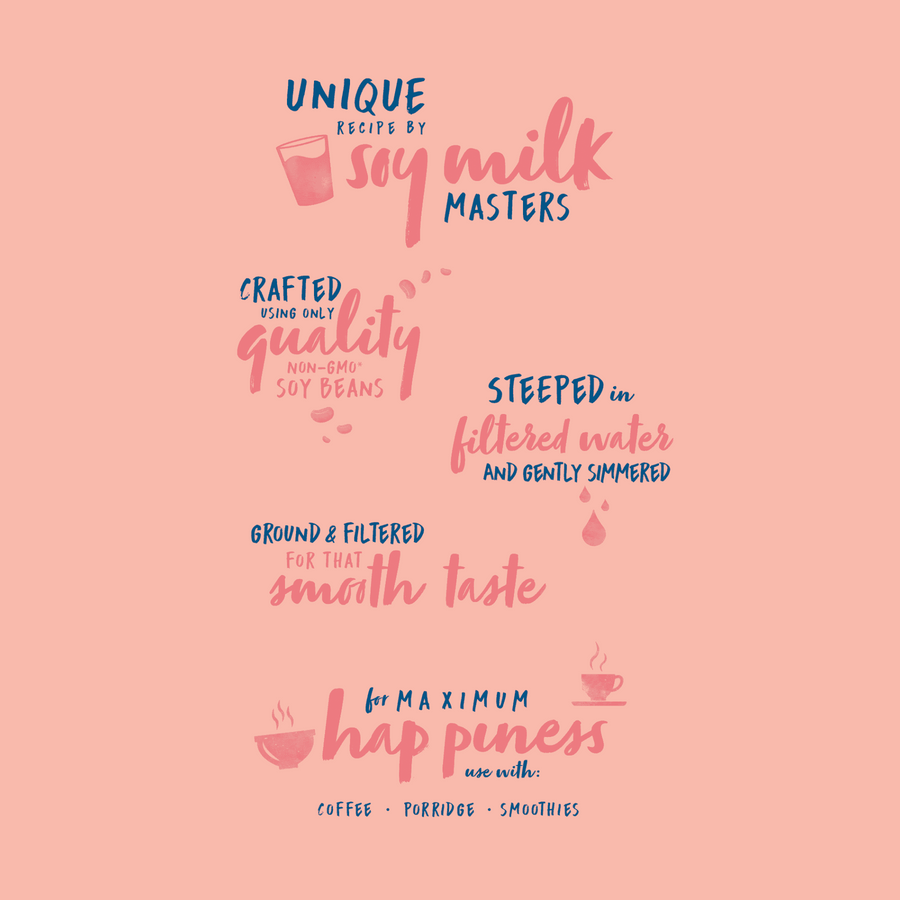 UNIQUE
RECIPE BY
soy milk
MASTERS
CRAFTED
USING ONLY
quality
NON-GMO*
SOY BEANS
STEEPED in
filtered water
AND GENTLY SIMMERED
GROUND & FILTERED
FOR THAT
smooth taste
for MAXIMUM
happiness
use with:
COFFEE · PORRIDGE · SMOOTHIES